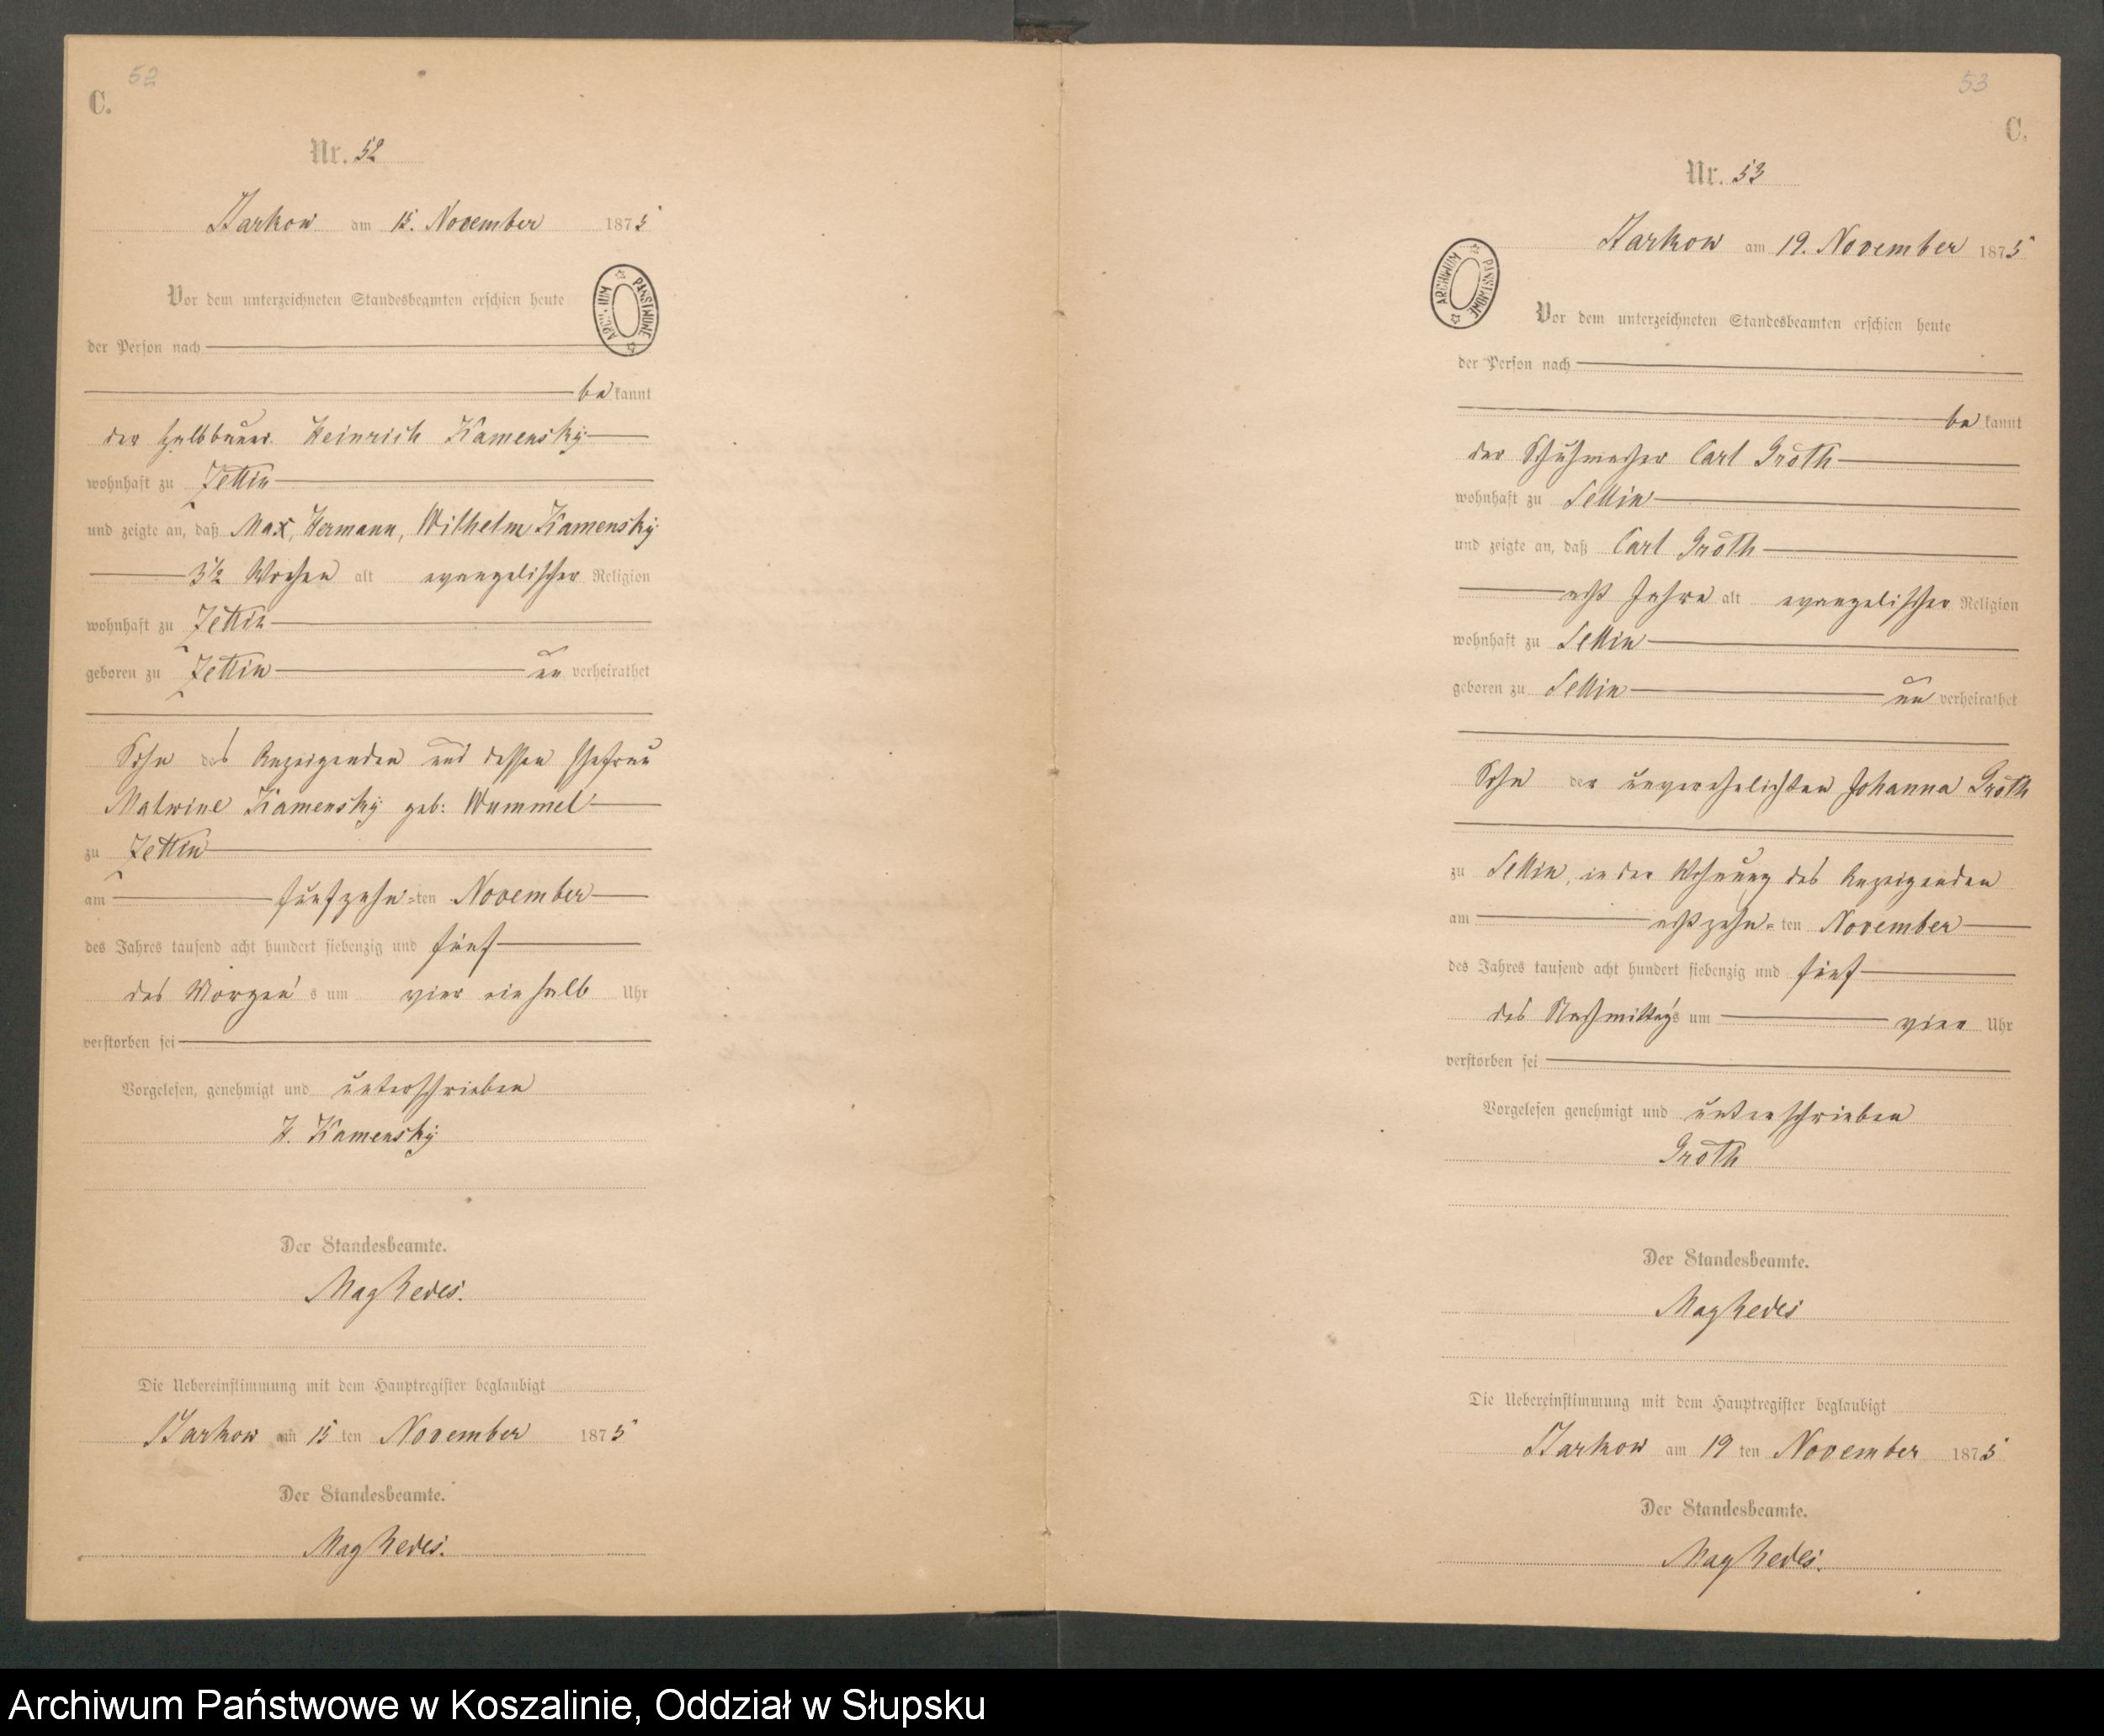 52
C.
Nr. 52
Starkow am 15. November 1875
Vor dem unterzeichneten Standesbeamten erschien heute
der Person nach
bekannt
der Halbbauer Heinrich Kamensky
wohnhaft zu Zettin
und zeigte an, daß Max, Hermann, Wilhelm Kamensky
3½ Wochen alt evangelischer Religion
wohnhaft zu Zettin
geboren zu Zettin unverheirathet
Sohn des Anzeigenden und dessen Ehefrau
Malwine Kamensky geb: Wummel
zu Zettin
am fünfzehn=ten November
des Jahres tausend acht hundert siebenzig und fünf
des Morgens um vier ein halb Uhr
verstorben sei
Vorgelesen, genehmigt und unterschrieben
H. Kamensky
Der Standesbeamte.
Die Uebereinstimmung mit dem Hauptregister beglaubigt
Starkow am 15 ten November 1875
Der Standesbeamte.
ARCHIWUM PAŃSTWOWE
53
C.
Nr. 53
Starkow am 19. November 1875
ARCHIWUM PAŃSTWOWE
Vor dem unterzeichneten Standesbeamten erschien heute
der Person nach
bekannt
der Schuhmacher Carl Groth
wohnhaft zu Sellin
und zeigte an, daß Carl Groth
acht Jahre alt evangelischer Religion
wohnhaft zu Sellin
geboren zu Sellin unverheirathet
Sohn der unverehelichten Johanna Groth
zu Sellin, in der Wohnung des Anzeigenden
am achtzehn=ten November
des Jahres tausend acht hundert siebenzig und fünf
des Nachmittags um vier Uhr
verstorben sei
Vorgelesen genehmigt und unterschrieben
Groth
Der Standesbeamte.
Die Uebereinstimmung mit dem Hauptregister beglaubigt
Starkow am 19 ten November 1875
Der Standesbeamte.
Archiwum Państwowe w Koszalinie, Oddział w Słupsku